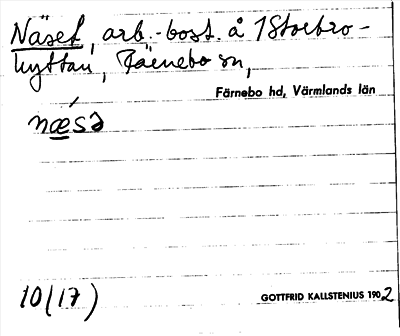 Näset, arb.-bost. å 1 Storbro-
hyttan, Färnebo sn,
Färnebo hd, Värmlands län
næ´sə
10(17)
GOTTFRID KALLSTENIUS 1902